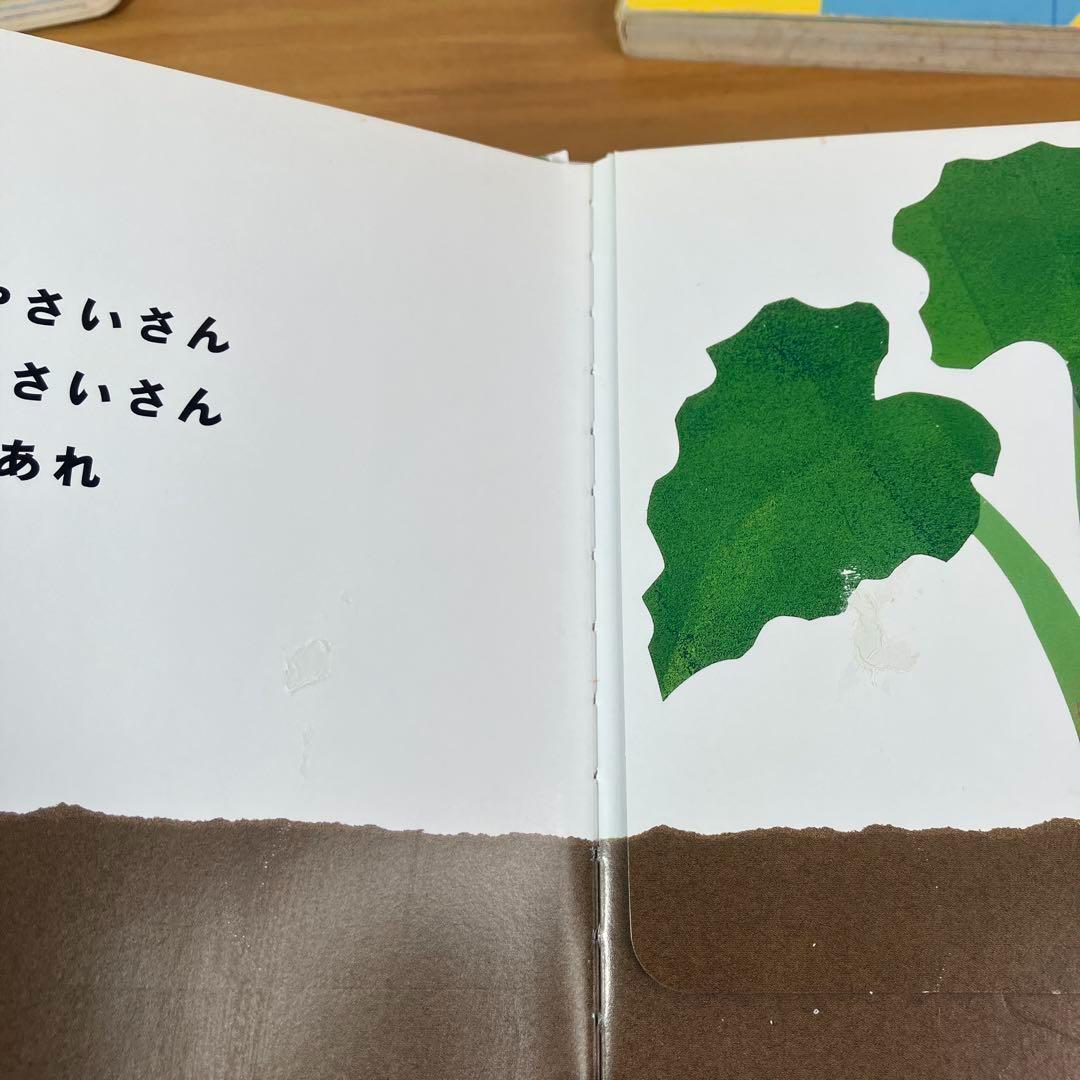 さいさん
さいさん
あれ